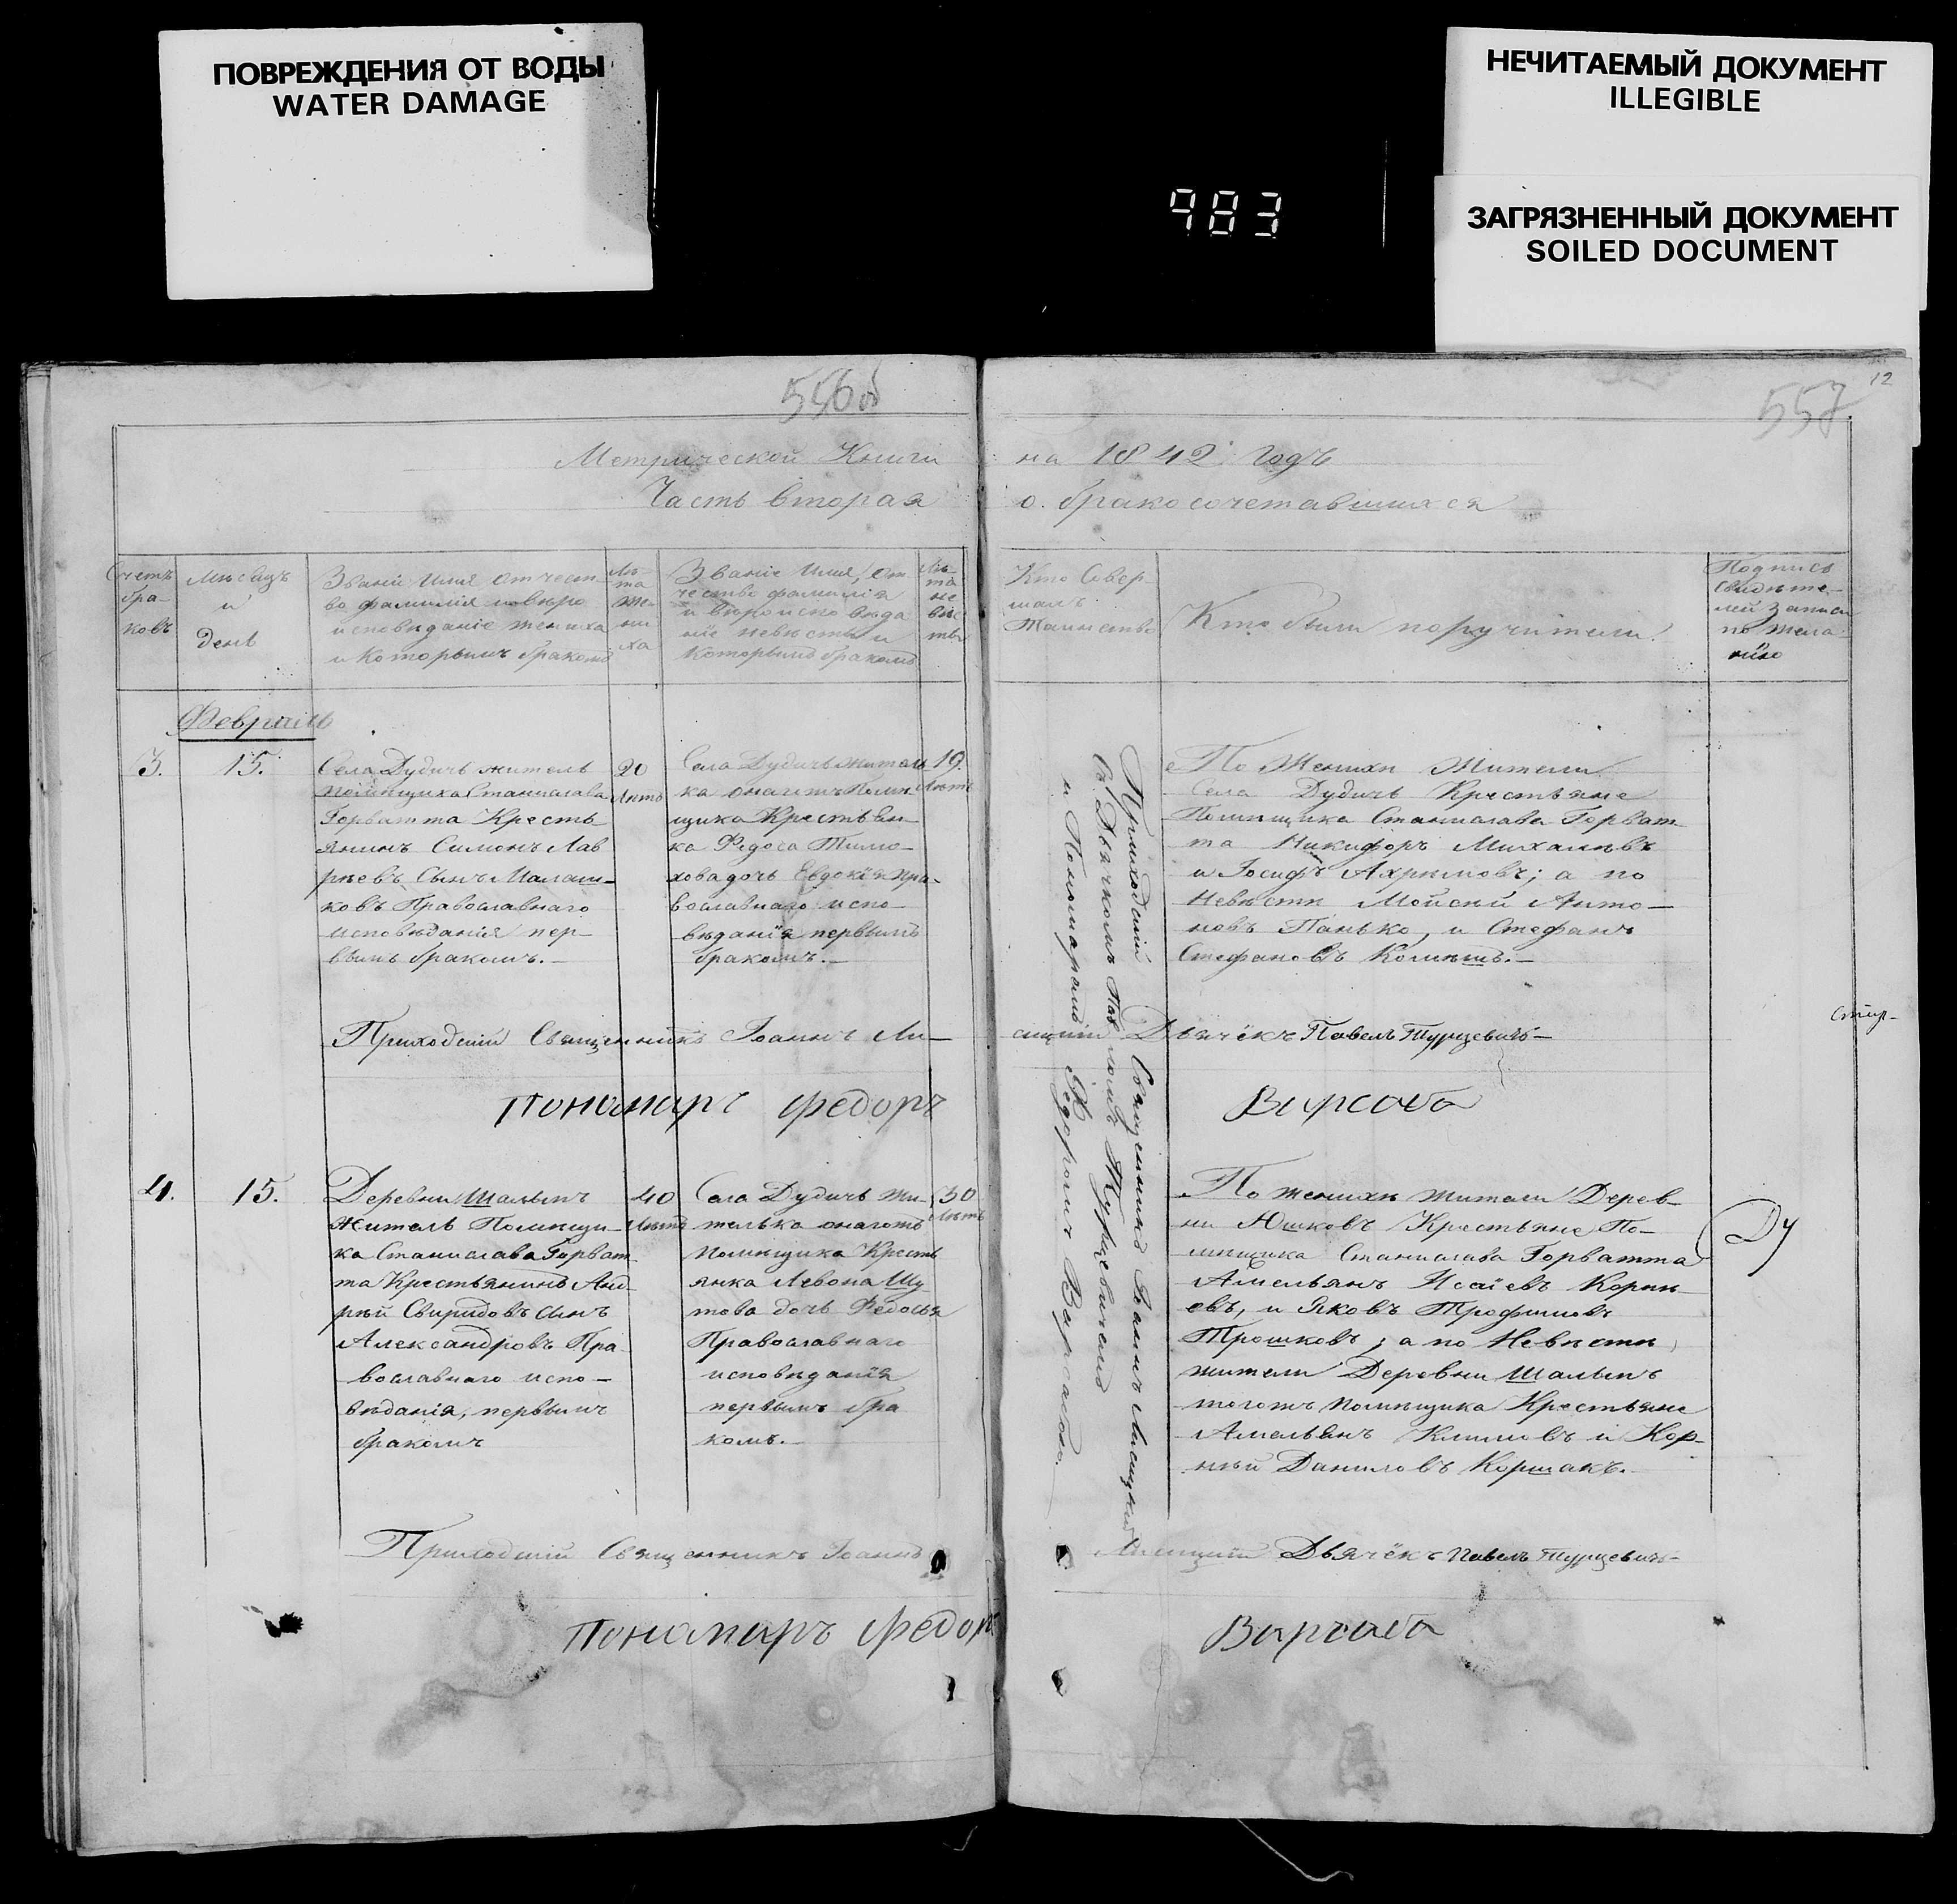 ПОВРЕЖДЕНИЯ ОТ ВОДЫ
WATER DAMAGE
НЕЧИТАЕМЫЙ ДОКУМЕНТ
ILLEGIBLE
983
ЗАГРЯЗНЕННЫЙ ДОКУМЕНТ
SOILED DOCUMENT
556об
557
12
Метрической Книги на 1842 годъ
Часть вторая о бракосочетавшихся
Счетъ
бра-
ковъ
Мѣсяцъ
и
день
Званіе Имя отчест-
во фамилія и вѣро
исповѣданіе жениха
и которымъ бракомъ
Лѣ-
та
же-
ни-
ха
Званіе Имя, от-
чество фамилія
и вѣроисповѣда
ніе невѣсты и
которымъ бракомъ
Лѣ-
та
не
вѣс
ты
Кто Совер-
шалъ
Таинство
Кто были поручители.
Подпись
свидѣте-
лей записи
по жела-
нію
Февраль
3.
15.
Села Дудичь житель
помѣщика Станислава
Горватта Кресть-
янинъ Симонъ Лав
рѣевъ Сынъ Малаш-
ковъ Православнаго
исповѣданія пер-
вымъ бракомъ.
20
Лѣтъ
Села Дудичь житель
ка онагожъ Помѣ-
щика Крестьян-
ка Федоса Тимо-
хова дочь Евдокія пра-
вославнаго испо-
вѣданія первымъ
бракомъ.
19.
Лѣтъ
Приходскій Священникъ Іоаннъ Лисицкій
Съ Дьячкомъ Павломъ Турцевичемъ
и Пономаремъ Федоромъ Варсабою.
По Женихѣ Жители
Села Дудичь Крестьяне
Помѣщика Станислава Горват-
та Никифоръ Михалевъ
и Іосифъ Ахримовъ; а по
Невѣстѣ Мойсей Анто-
новъ Панько, и Стефанъ
Стефановъ
Приходскій Священникъ Іоаннъ Ли-
сицкій Дьячёкъ Павелъ Турцевичъ
Пономаръ Федоръ Варсаба
4.
15.
Деревни Шалыпъ
житель Помѣщи-
ка Станислава Горват
та Крестьянинъ Анд-
рей Свиридовъ сынъ
Александровъ Пра
вославнаго испо-
вѣданія, первымъ
бракомъ
40
Лѣтъ
Села Дудичь жи-
телька онагожъ
помѣщика Кресть
янка Левона Шу
това дочь Федосья
Православнаго
исповѣданія
первымъ бра
комъ.
30
Лѣтъ
По женихѣ жители Дерев-
ни Юшковъ Крестьяне По-
мѣщика Станислава Горватта
Амельянъ Исаіевъ Корнѣ-
евъ, и Яковъ Трофимовъ
Трошковъ; а по Невѣстѣ
жители Деревни Шалыпъ
тогожъ помѣщика Крестьяне
Амельянъ Климовъ и Кор-
нѣй Даниловъ Коршакъ.
Ду
Приходскій Священникъ Іоаннъ Лисицкій Дьячёкъ Павелъ Турцевичъ
Пономаръ Федоръ Варсаба